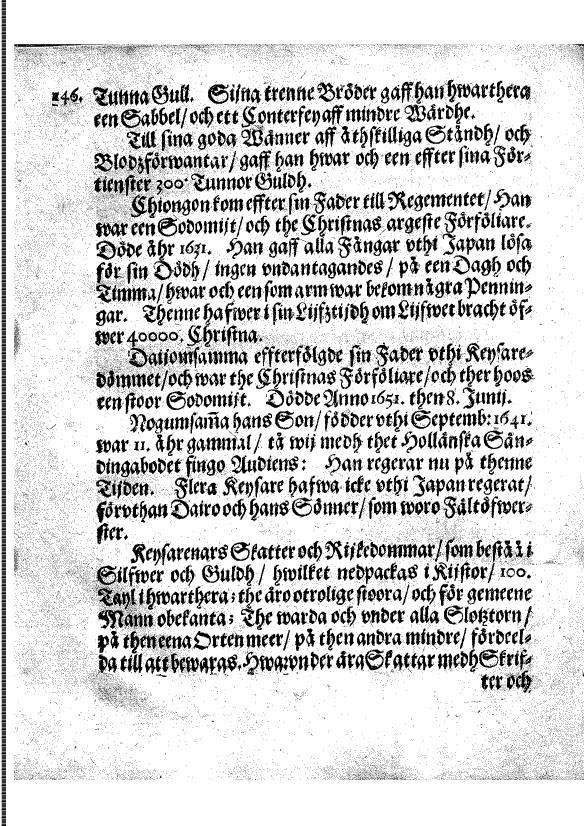 146. Tunna Gull. Sijna trenne Bröder gaff han hwarthera
een Sabbel/ och ett Conterfey aff mindre Wärdhe.
Till sina goda Wänner aff åthskilliga Ständh/ och
Blodzförwantar/ gaff han hwar och een effter sina För-
tienster 300 Tunnor Guldh.
Chiongon kom effter sin Fader till Regementet/ Han
war een Sodomijt/ och the Christnas argeste Förföliare.
Döde åhr 1631. Han gaff alla Fångar vthi Japan lösa
för sin Dödh/ ingen vndantagandes/ på een Dagh och
Timma/ hwar och een som arm war bekom några Pennin-
gar. Thenne hafwer i sin Lijfztijdh om Lijfwet bracht öf-
wer 40000. Christna.
Daijomsamma effterfölgde sin Fader vthi Keysare-
dömmet/ och war the Christnas Förföliare/ och ther hoos
een stoor Sodomijt. Dödde Anno 1651. then 8. Junij.
Nogumsam̃a hans Son/ födder vthi Septemb: 1641.
war 11. åhr gammal/ tå wij medh thet Hollänska Sän-
dingabodet fingo Audiens: Han regerar nu på thenne
Tijden. Flera Keysare hafwa icke vthi Japan regerat/
förvthan Dairo och hans Sönner/ som woro Fältöfwer-
ster.
Keysarenars Skatter och Rijkedommar/ som bestå å i
Silfwer och Guldh/ hwilket nedpackas i Kijstor/ 100.
Tayl i hwarthera; the äro otrolige stoora/ och för gemeene
Mann obekanta; The warda och vnder alla Slotztorn/
på then eena Orten meer/ på then andra mindre/ fördeel-
da till att bewaras. Hwarvnder ära Skattar medh Skrif-
ter och